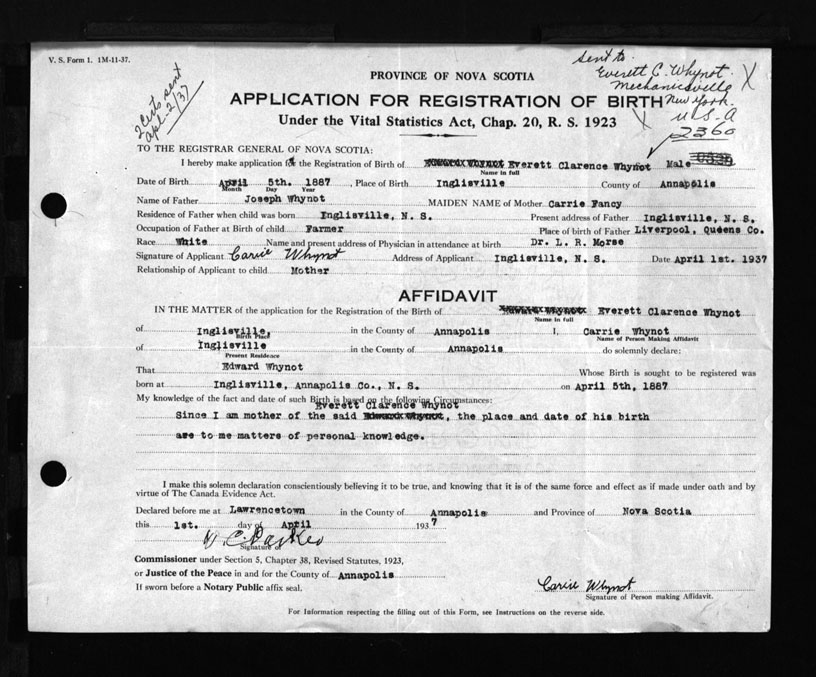 V. S. Form 1. 1M-11-37.
2 Certs sent
Apl. 2/37
Sent to
Everett C. Whynot.
Mechanicsville
New York.
U.S.A
2360
PROVINCE OF NOVA SCOTIA
APPLICATION FOR REGISTRATION OF BIRTH
Under the Vital Statistics Act, Chap. 20, R. S. 1923
TO THE REGISTRAR GENERAL OF NOVA SCOTIA:
I hereby make application for the Registration of Birth of Everett Clarence Whynot Male
Name in full
Date of Birth April 5th. 1887, Place of Birth Inglisville County of Annapolis
Month Day Year
Name of Father Joseph Whynot MAIDEN NAME of Mother Carrie Fancy
Residence of Father when child was born Inglisville, N. S. Present address of Father Inglisville, N. S.
Occupation of Father at Birth of child Farmer Place of birth of Father Liverpool, Queens Co.
Race White Name and present address of Physician in attendance at birth Dr. L. R. Morse
Signature of Applicant Carrie Whynot Address of Applicant Inglisville, N. S. Date April 1st. 1937
Relationship of Applicant to child Mother
AFFIDAVIT
IN THE MATTER of the application for the Registration of the Birth of Edward Whynot Everett Clarence Whynot
Name in full
of Inglisville, in the County of Annapolis I, Carrie Whynot
Birth Place Name of Person Making Affidavit
of Inglisville in the County of Annapolis do solemnly declare:
Present Residence
That Edward Whynot Whose Birth is sought to be registered was
born at Inglisville, Annapolis Co., N. S. on April 5th, 1887
My knowledge of the fact and date of such Birth is based on the following Circumstances:
Everett Clarence Whynot
Since I am mother of the said Edward Whynot, the place and date of his birth
are to me matters of personal knowledge.
I make this solemn declaration conscientiously believing it to be true, and knowing that it is of the same force and effect as if made under oath and by
virtue of The Canada Evidence Act.
Declared before me at Lawrencetown in the County of Annapolis and Province of Nova Scotia
this 1st. day of April 1937
Signature of
Commissioner under Section 5, Chapter 38, Revised Statutes, 1923,
or Justice of the Peace in and for the County of Annapolis
If sworn before a Notary Public affix seal.
Carrie Whynot
Signature of Person making Affidavit.
For Information respecting the filling out of this Form, see Instructions on the reverse side.